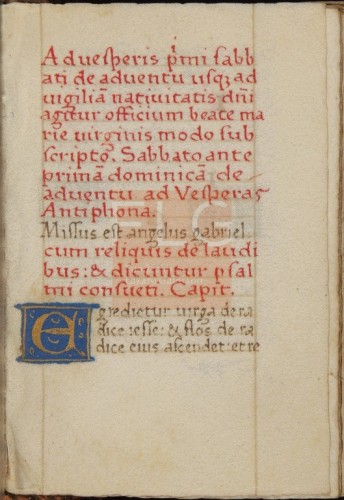 A d vesperis p̄mi sabb
ati de adventu usq3 ad
vigiliā nativitatis dn̄i
agitur officium beate ma
rie virginis modo sub
scripto. Sabbato ante
primā dominicā de
adventu ad Vesperas
Antiphona.
Missus est angelus gabriel
cum reliquis de laudi
bus: & dicuntur psal
mi consueti. Capit.
Egredietur virga de ra
dice iesse: & flos de ra
dice eius ascendet: et re